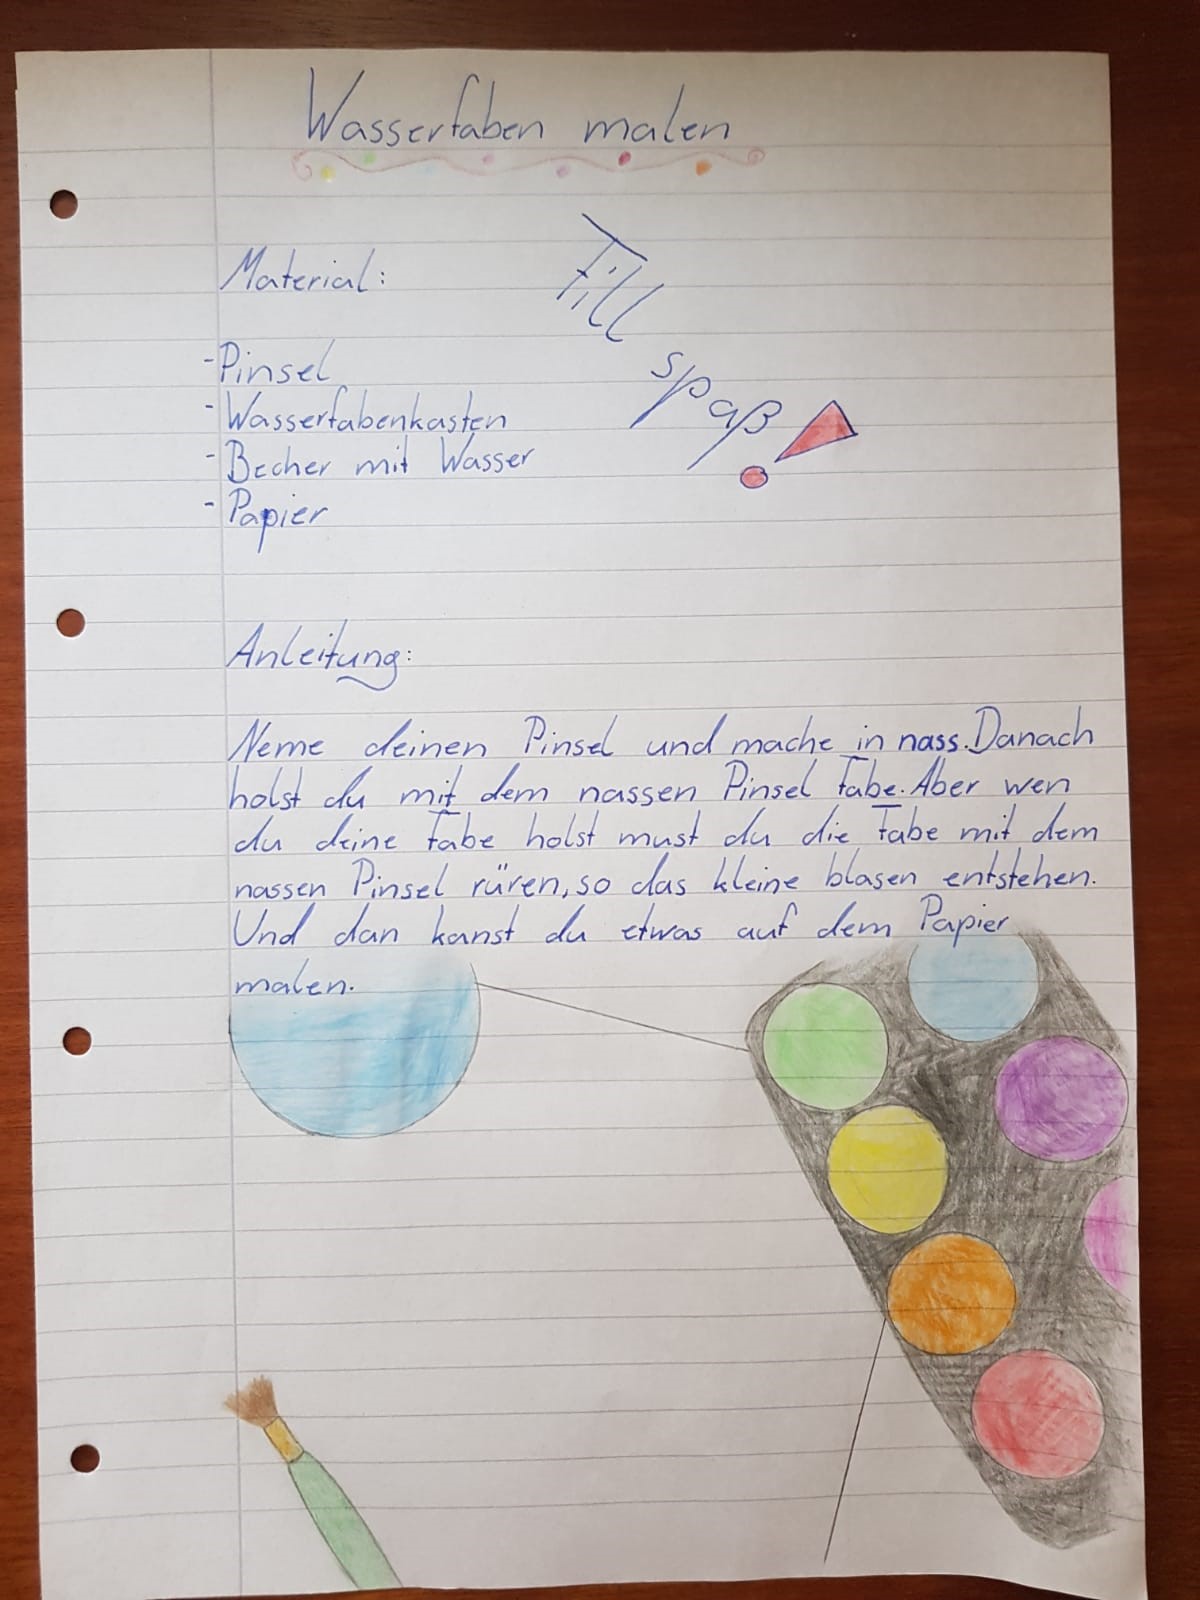 Wasserfaben malen
Material:
Fill
spaß!
-Pinsel
-Wasserfabenkasten
-Becher mit Wasser
-Papier
Anleitung:
Neme deinen Pinsel und mache in nass. Danach
holst du mit dem nassen Pinsel Fabe. Aber wen
du deine Fabe holst must du die Fabe mit dem
nassen Pinsel rüren, so das kleine blasen entstehen.
Und dan kanst du etwas auf dem Papier
malen.